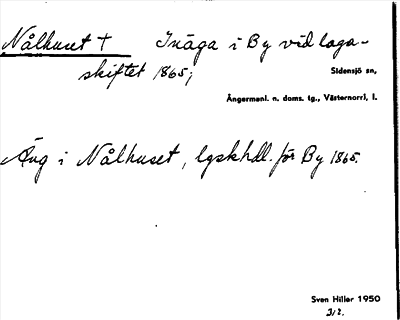 Nålhuset † Inäga i By vid laga-
skiftet 1865;
Sidensjö sn,
Ångermanl. n. doms. lg., Västernorrl. l.
Äng i Nålhuset, lgskhdl. för By 1865.
Sven Hiller 1950
3/2.